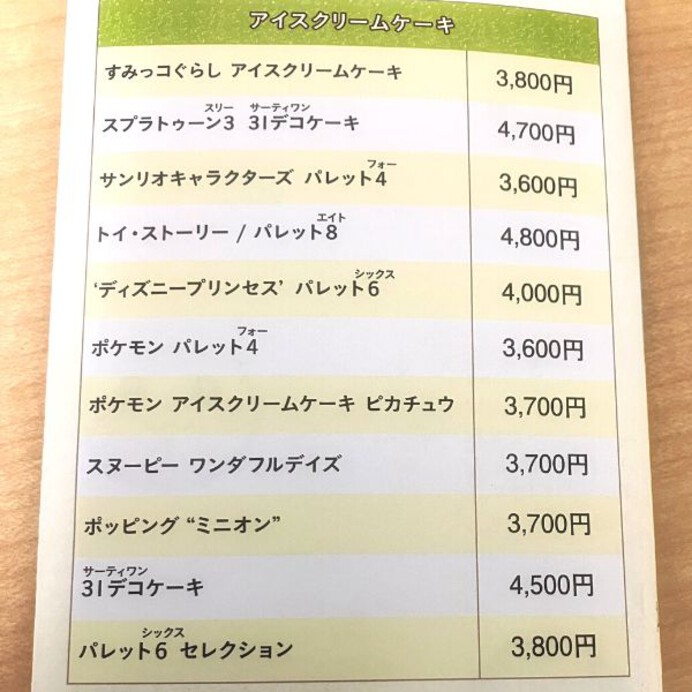 アイスクリームケーキ
すみっコぐらし アイスクリームケーキ 3,800円
スリー サーティワン
スプラトゥーン3 31デコケーキ 4,700円
フォー
サンリオキャラクターズ パレット4 3,600円
エイト
トイ・ストーリー / パレット8 4,800円
シックス
‘ディズニープリンセス’ パレット6 4,000円
フォー
ポケモン パレット4 3,600円
ポケモン アイスクリームケーキ ピカチュウ 3,700円
スヌーピー ワンダフルデイズ 3,700円
ポッピング “ミニオン” 3,700円
サーティワン
31デコケーキ 4,500円
シックス
パレット6 セレクション 3,800円